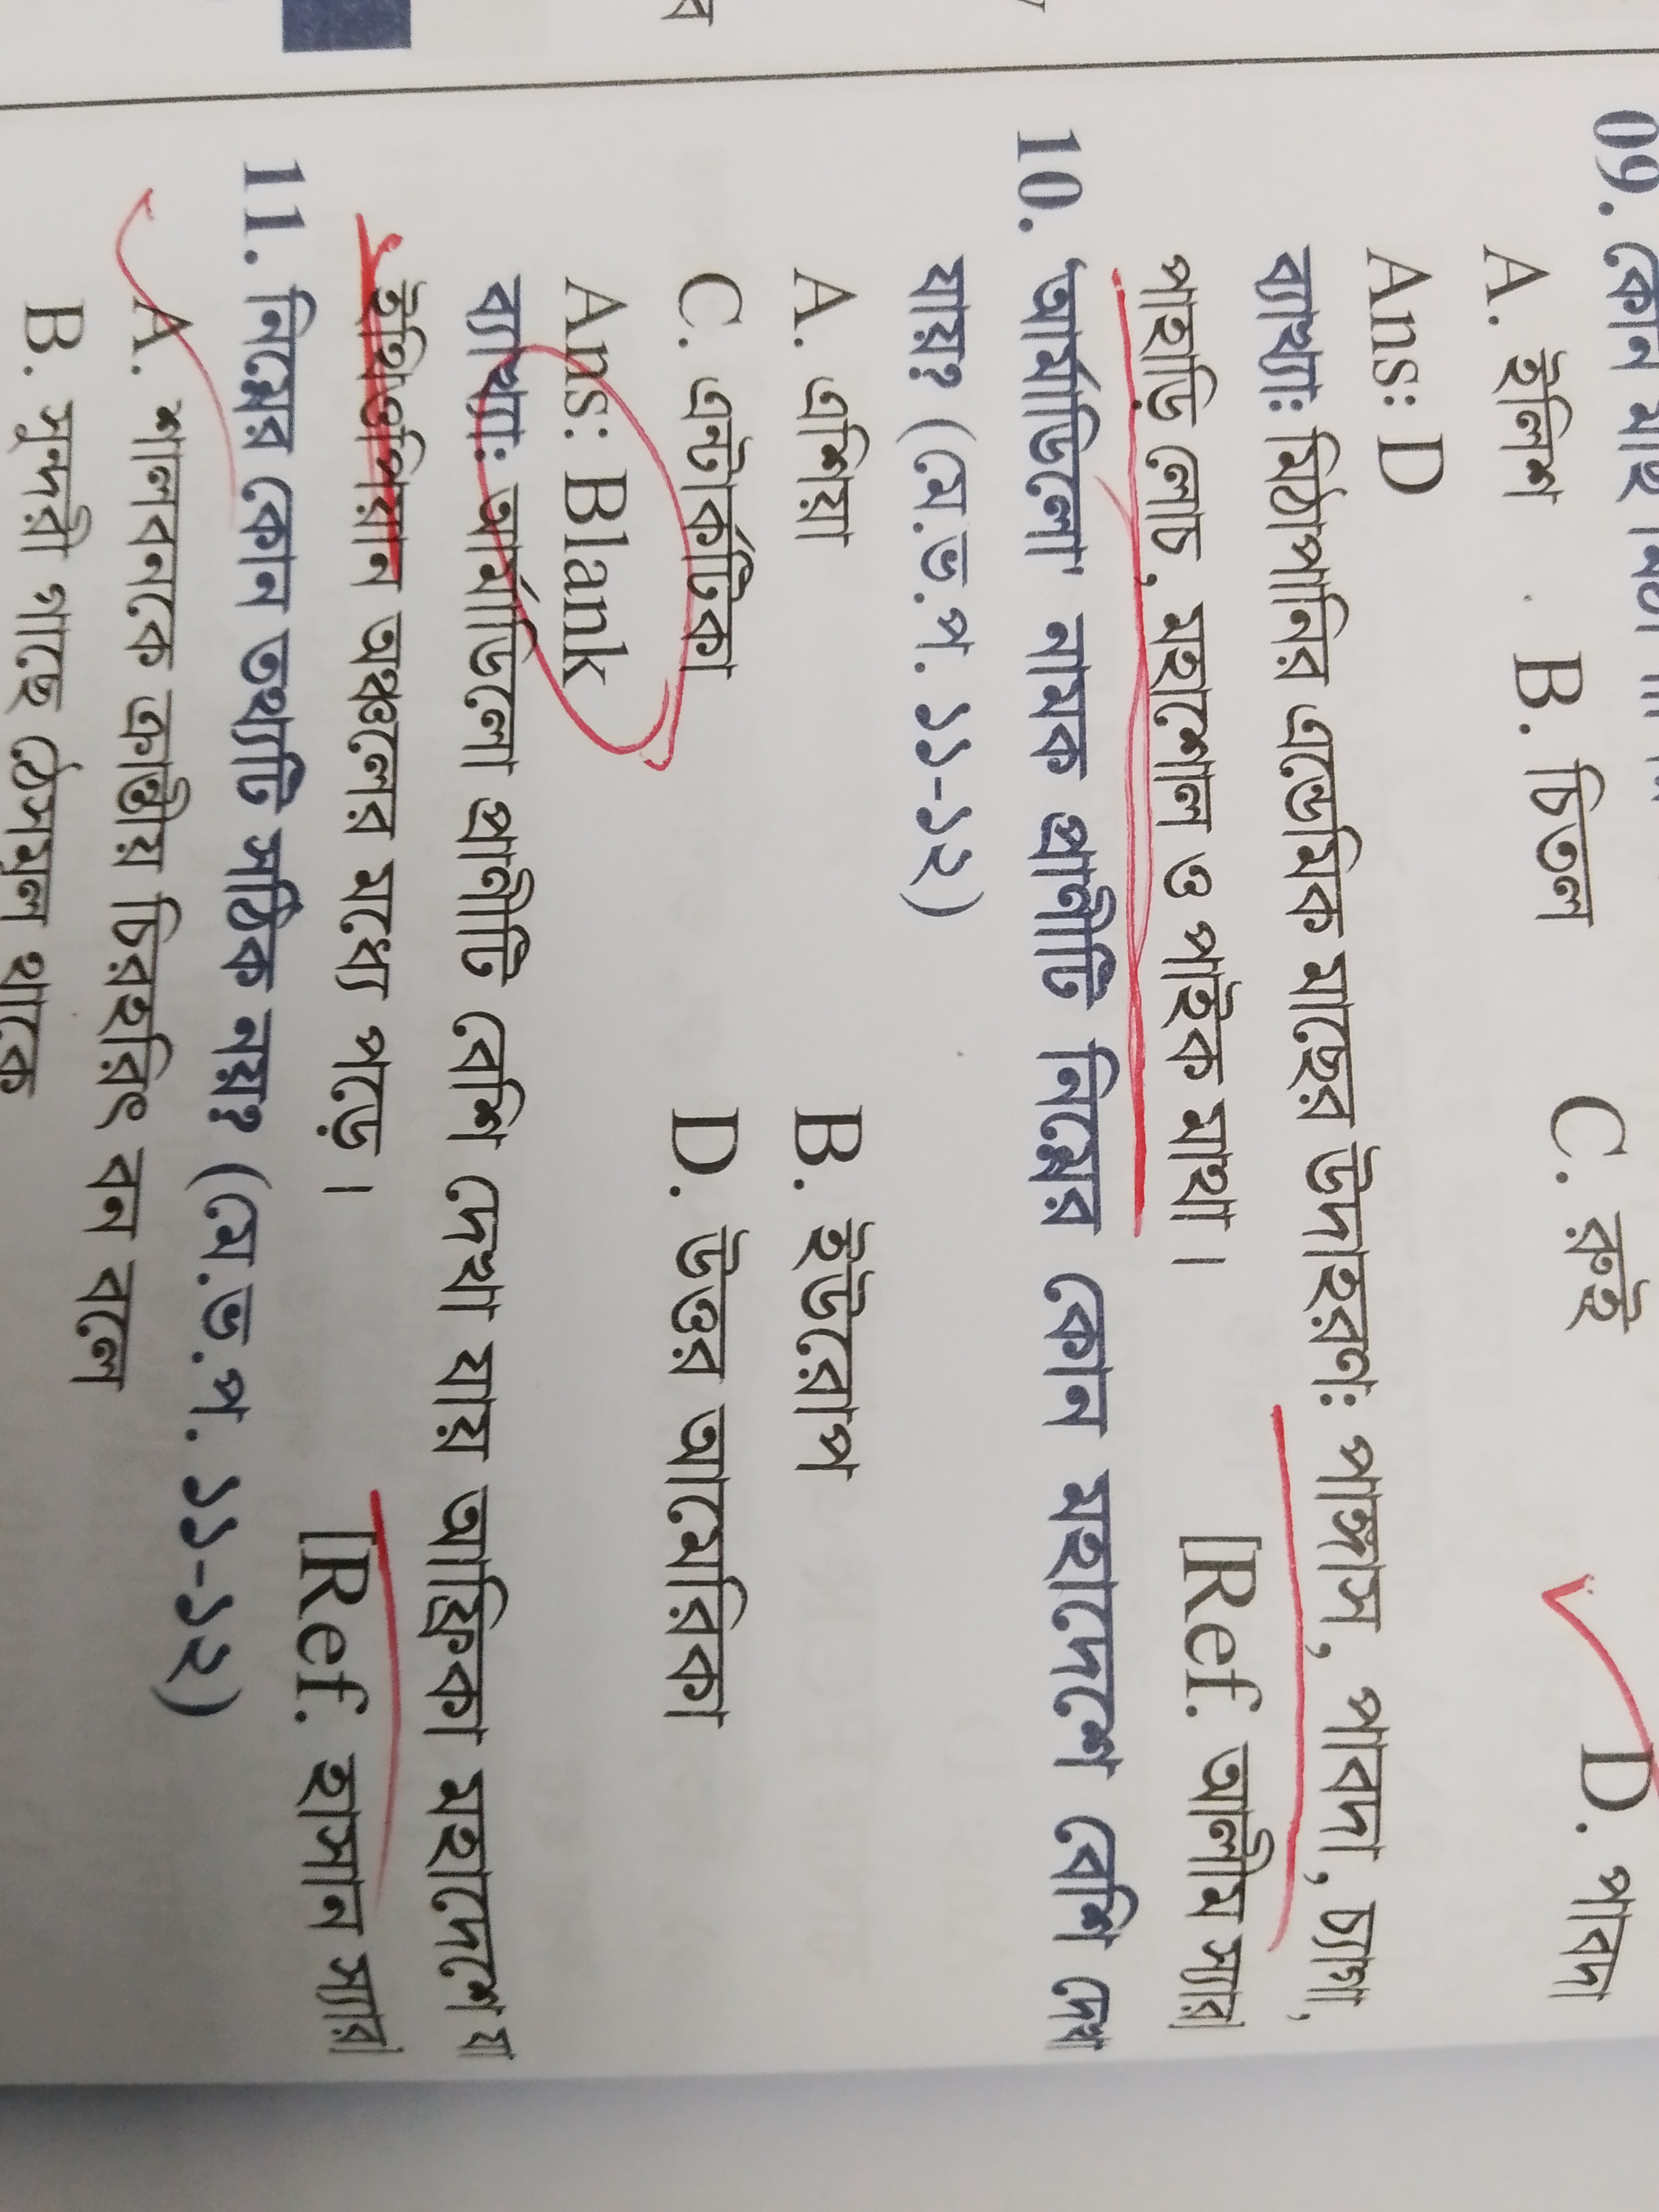 09. কোন মাছ মিঠা
A. ইলিশ B. চিতল C. রুই D. পাবদা
Ans: D
ব্যাখ্যা: মিঠাপানির এন্ডেমিক মাছের উদাহরণ: পাঙ্গাস, পাবদা, চ্যাপা,
পাহাড়ি লোচ, মহাশোল ও পাইক মাথা।
[Ref. আলীম স্যার]
10. 'আর্মাডিলো' নামক প্রাণীটি নিম্নের কোন মহাদেশে বেশি দেখা
যায়? (মে.ভ.প. ১১-১২)
A. এশিয়া B. ইউরোপ
C. এন্টার্কটিকা D. উত্তর আমেরিকা
Ans: Blank
ব্যাখ্যা: আর্মাডিলো প্রাণীটি বেশি দেখা যায় আফ্রিকা মহাদেশে যা
ইথিওপিয়ান অঞ্চলের মধ্যে পড়ে। [Ref. হাসান স্যার]
11. নিম্নের কোন তথ্যটি সঠিক নয়? (মে.ভ.প. ১১-১২)
A. শালবনকে ক্রান্তীয় চিরহরিৎ বন বলে
B. সুন্দরী গাছে ঠেসমূল থাকে